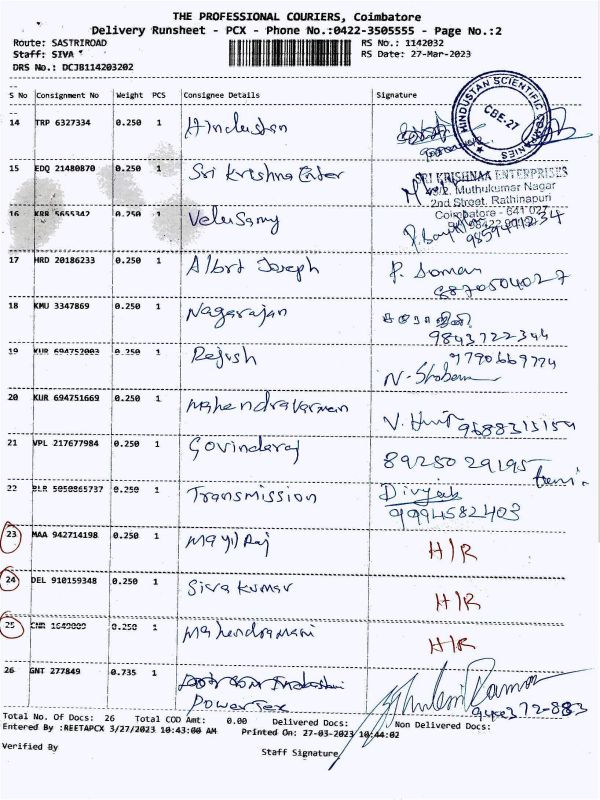 THE PROFESSIONAL COURIERS, Coimbatore
Delivery Runsheet - PCX - Phone No.:0422-3505555 - Page No.:2
Route: SASTRIROAD RS No.: 1142032
Staff: SIVA RS Date: 27-Mar-2023
DRS No.: DCJB114203202
S No Consignment No Weight PCS Consignee Details Signature
14 TRP 6327334 0.250 1 Hindustan
HINDUSTAN SCIENTIFIC COMPANIES CBE-27
15 EDQ 21480870 0.250 1 Sri Krishna Enter
SRI KRISHNAA ENTERPRISES
49/2, Muthukumar Nagar
2nd Street, Rathinapuri
Coimbatore - 641 027
16 KRR 5655342 0.250 1 Velusamy
17 HRD 20186233 0.250 1 Albrt Joseph P. Soman
8870504027
18 KMU 3347869 0.250 1 Nagarajan
9843722344
19 KUR 694752003 0.250 1 Rejish 7790669774
20 KUR 694751669 0.250 1 Mahendravarman
21 VPL 217677984 0.250 1 Govindaraj 8925029195
22 BLR 5050865737 0.250 1 Transmission
9994582403
23 MAA 942714198 0.250 1 Mayil Raj H/R
24 DEL 910159348 0.250 1 Siva Kumar H/R
25 CNR 1649009 0.250 1 Mahendramani H/R
26 GNT 277849 0.735 1
Powertex
Total No. Of Docs: 26 Total COD Amt: 0.00 Delivered Docs: Non Delivered Docs:
Entered By :REETAPCX 3/27/2023 10:43:00 AM Printed On: 27-03-2023 10:44:02
Verified By Staff Signature